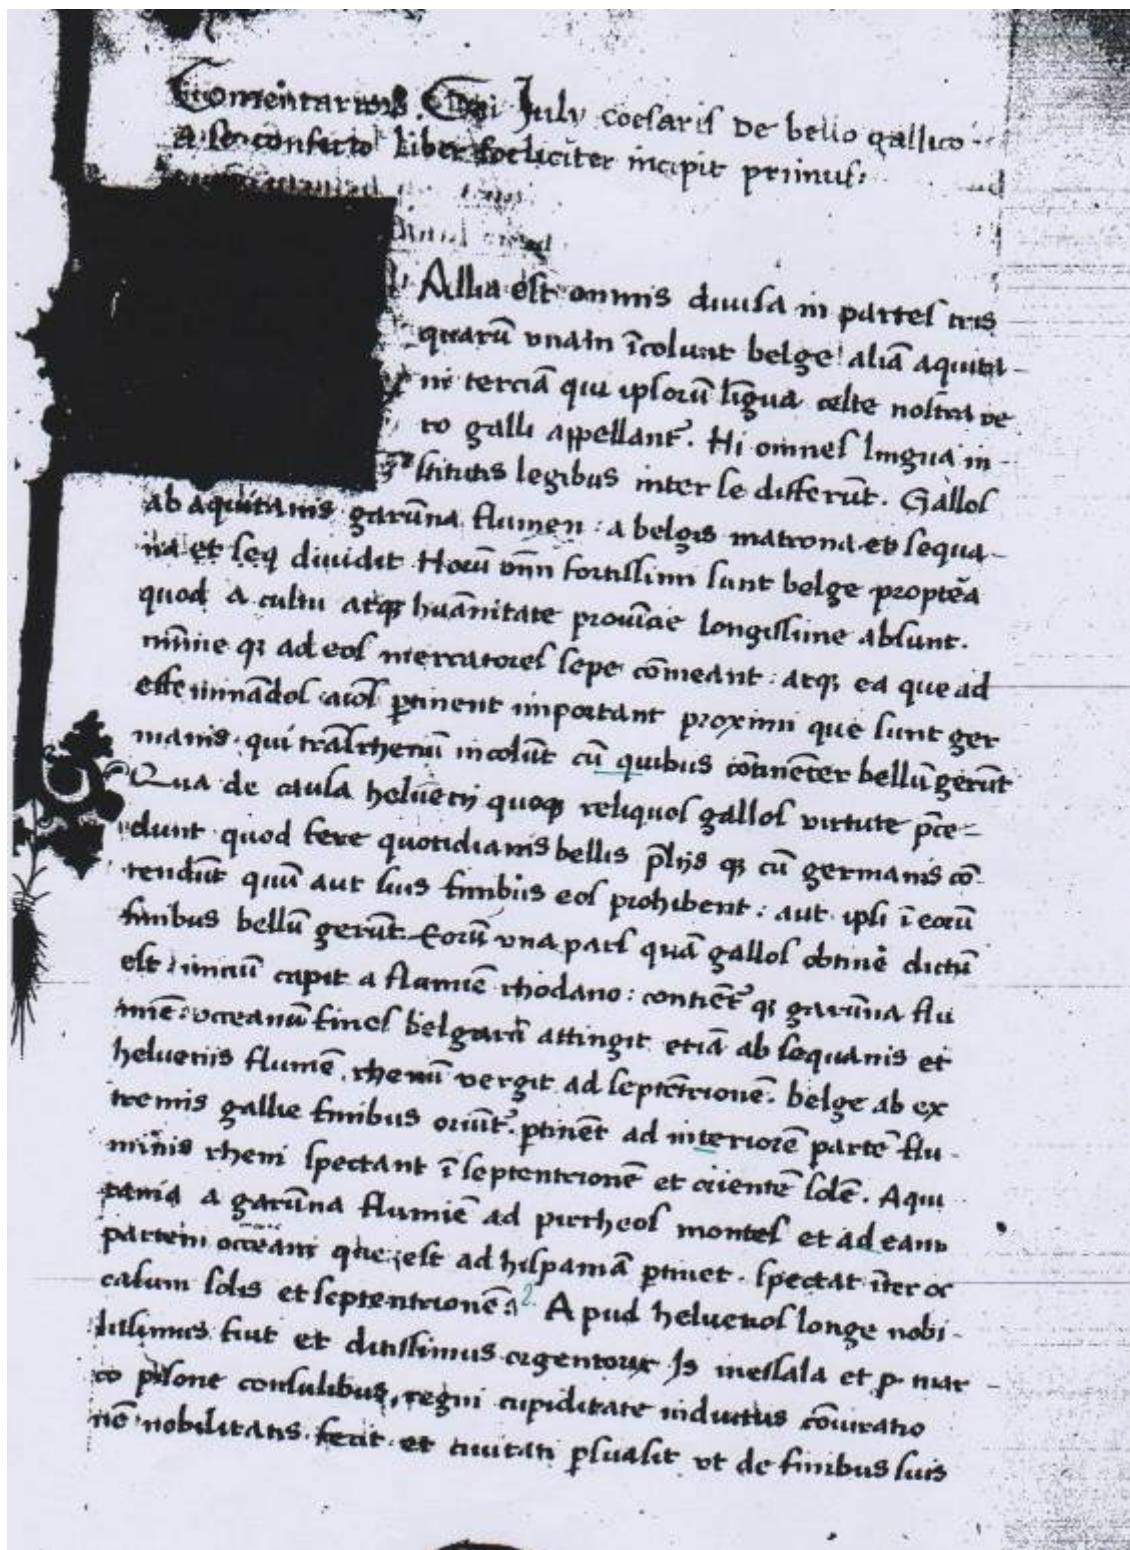 Comentarius Gai Julii coesaris de bello gallico
a se confecto liber foeliciter incipit primus:
Allia est omnis diuisa in partes tris
quarū vnam īcolunt belge: aliā aquita-
ni terciā qui ipsorū līgua celte nostra ve
ro galli appellant᷑. Hi omnes lingua in-
stitutis legibus inter se differūt. Gallos
ab aquitanis garūna flumen: a belgis matrona et sequa-
na et seq diuidit Horū om̄n fortissimi sunt belge propteā
quod a cultu atqꝫ huānitate prouīcie longissime absunt.
minīe qꝫ ad eos mercatores sepe cōmeant: atqꝫ ea que ad
effeminādos aīos ꝑtinent important proximi que sunt ger
manis. qui trāsrhenū incolūt cū quibus cōtinēter bellū gerūt
Qua de causa heluetij quoqꝫ reliquos gallos virtute p̄ce-
dunt quod fere quotidianis bellis p̄lijs qꝫ cū germanis cō-
tendūt quū aut suis finibus eos prohibent: aut ipsi ī eorū
finibus bellū gerūt. Eorū vna pars quā gallos obtinē dictū
est: iniciū capit a flumīe rhodano: contiēt᷑ qꝫ garūna flu
mīe: occeanū fines belgarū attingit etiā ab sequanis et
heluetiis flumē rhenū vergit ad septētrionē. belge ab ex
tremis gallie finibus oriūt᷑. ꝑtinēt ad interiorē partē flu-
minis rheni spectant ī septentrionē et orientē solē. Aqui
tania a garūna flumīe ad pirrheos montes et ad eam
partem occeani que est ad hispaniā ꝑtinet. spectat īter oc
casum solis et septentrionē: 2. Apud heluetios longe nobi-
lissimus fuit et ditissimus orgentorix Is messala et p. mar-
co pisone consulibus, regni cupiditate inductus cōiuratio
nē nobilitatis fecit et ciuitati ꝑsuasit vt de finibus suis